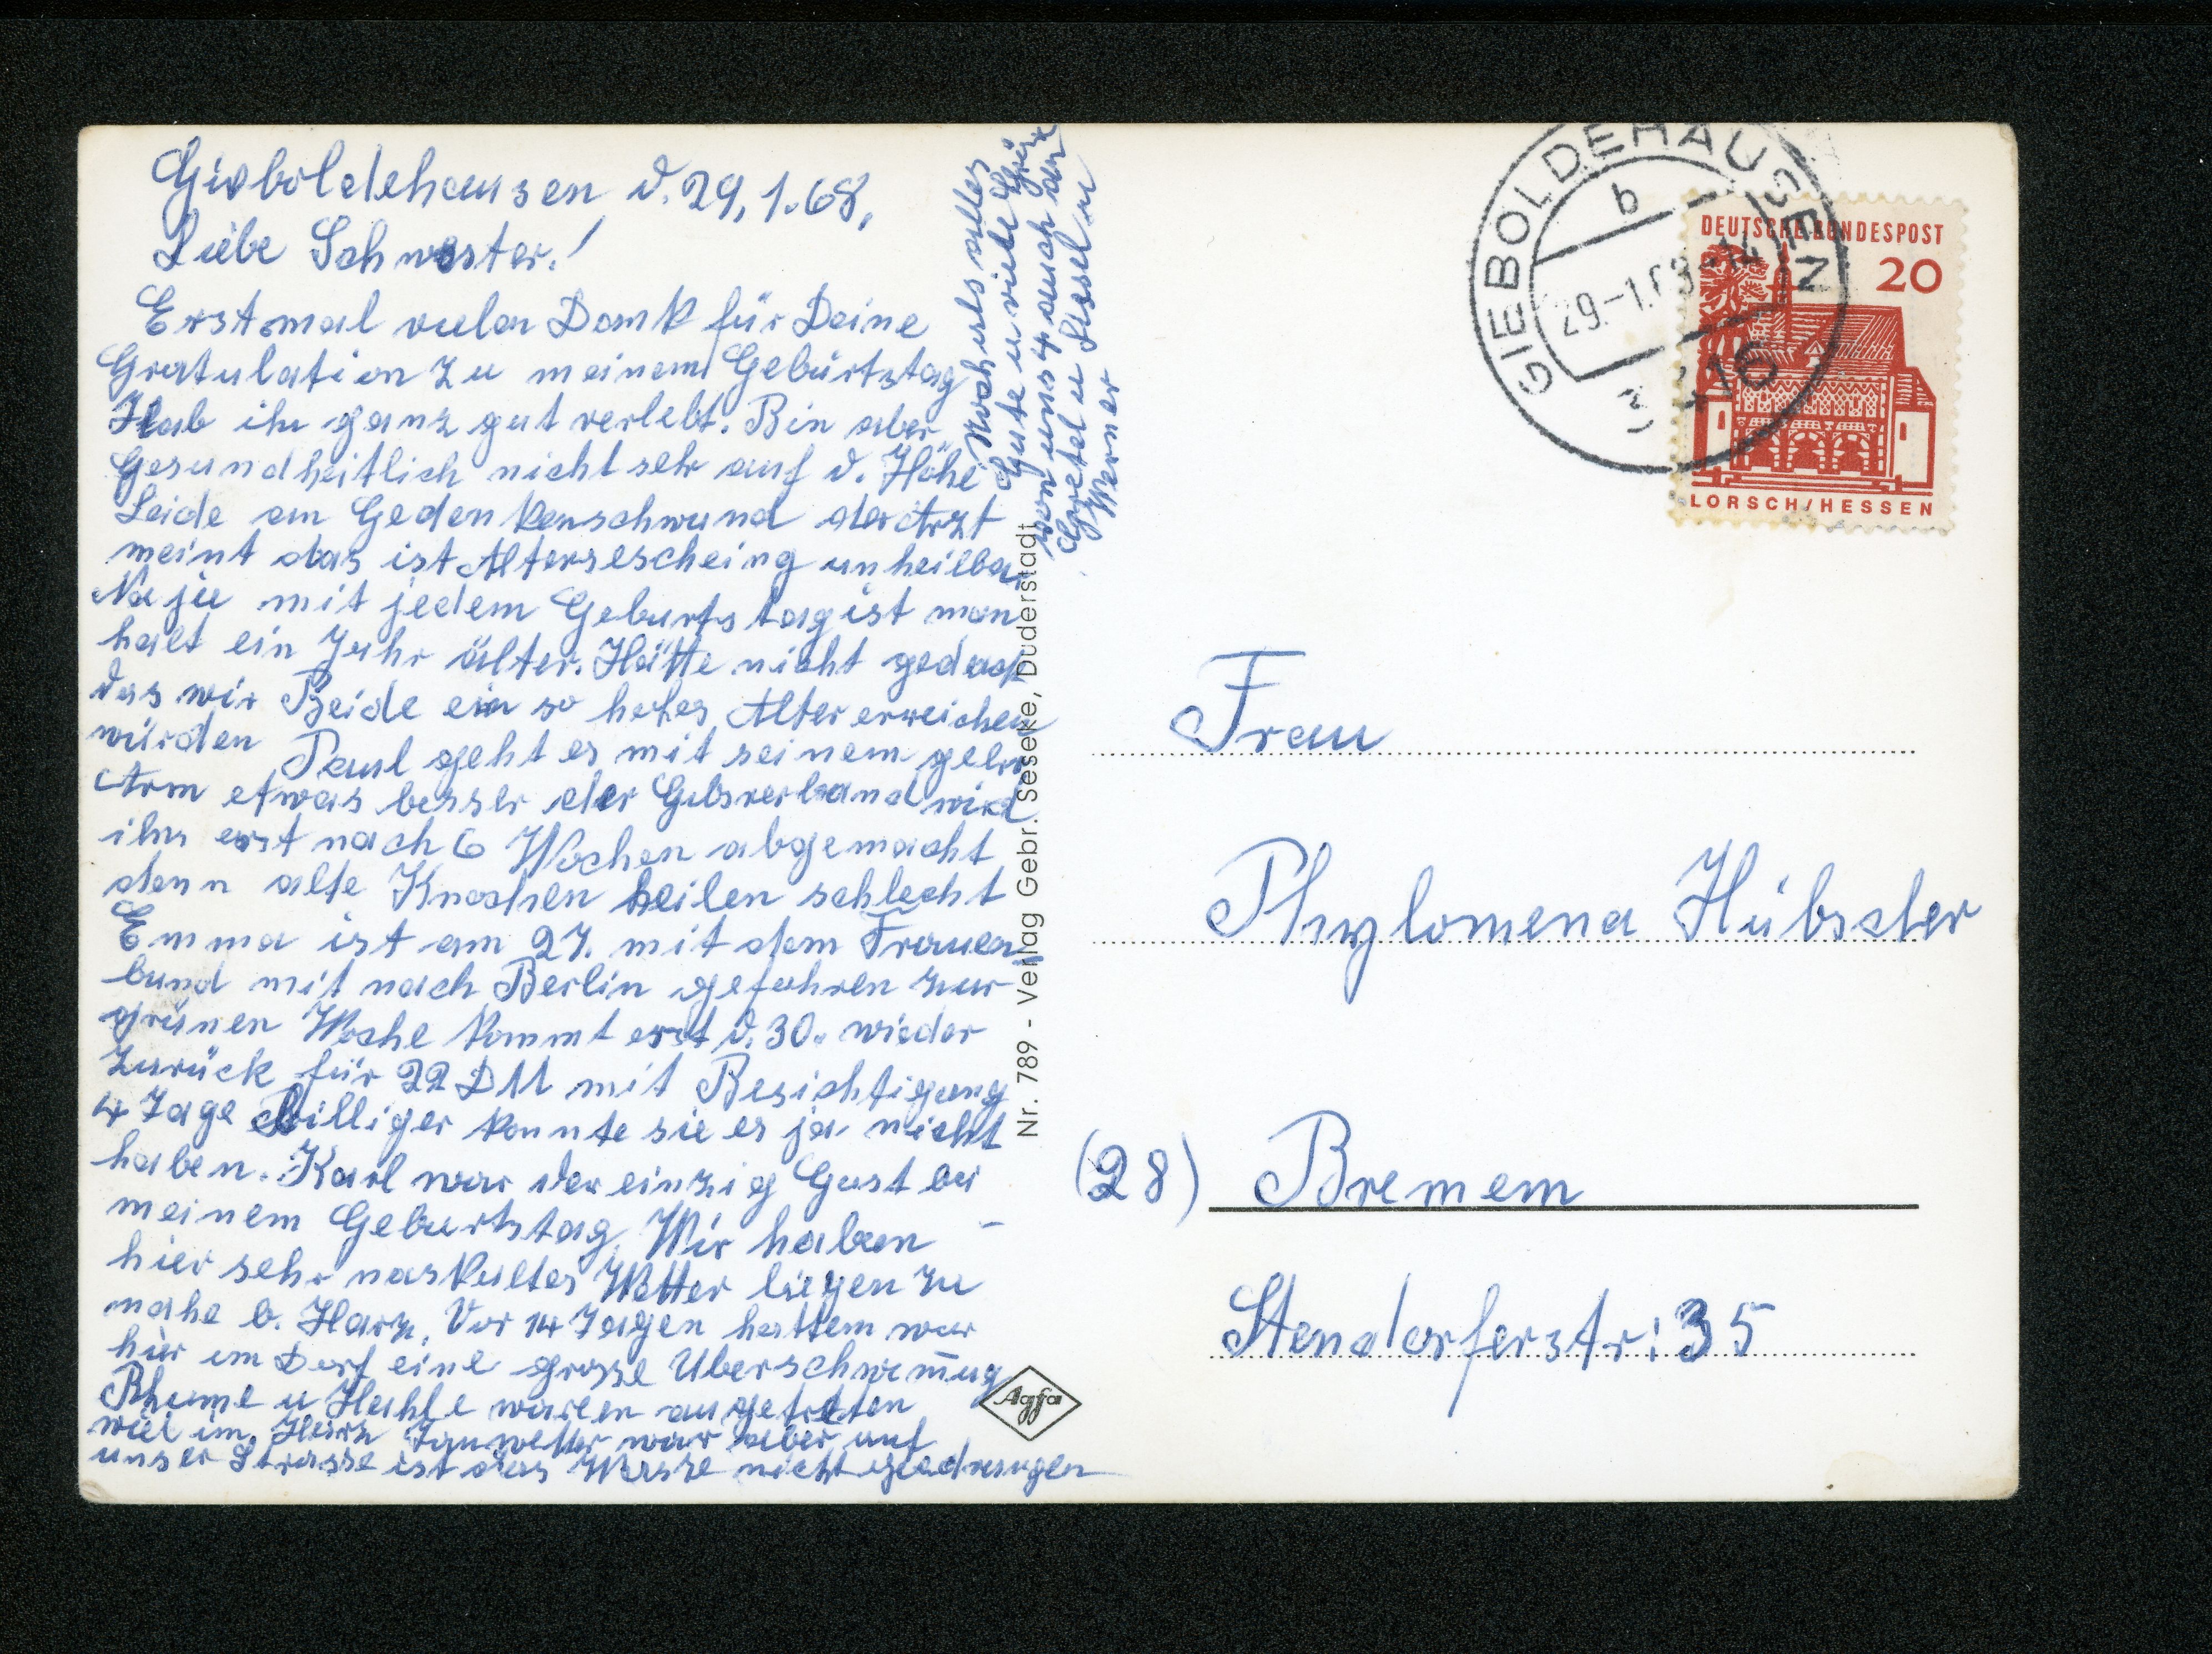 Gieboldehausen d. 29.1.68.
Liebe Schwester!
Erstmal vielen Dank für Deine
Gratulation zu meinem Geburtstag
Hab ihn ganz gut verlebt. Bin aber
Gesundheitlich nicht sehr auf d. Höhe
Leide an Gedenkenschwund der Arzt
meint das ist Altersescheing unheilbar
Na ja mit jedem Geburtstag ist man
halt ein Jahr älter. Hätte nicht gedacht
das wir Beide ein so hohes Alter erreichen
würden Paul geht es mit seinem gebr
Arm etwas besser der Gibsverband wird
ihm erst nach 6 Wochen abgemacht
denn alte Knochen heilen schlecht
Emma ist am 27. mit dem Frauen
bund mit nach Berlin gefahren zur
grünen Woche kommt erst d. 30. wieder
zurück für 22 DM mit Besichtigung
4 Tage billiger konnte sie es ja nicht
haben. Karl war der einzig Gast bei
meinem Geburtstag Wir haben -
hier sehr naskaltes Wetter liegen zu
nahe b. Harz. Vor 14 Tagen hattem war
hier im Dorf eine grosse Uberschwem̄ug
Rhume u Hahle waren ausgetreten
wiel im Harz Tauwetter war aber auf
unser Strasse ist das Wasse nicht gedrungen
Nochmals alles
Gute u viele Grüße
von uns 4 auch an
Gretel u
Werner
Nr. 789 - Verlag Gebr. Seseke, Duderstadt
Agfa
GIEBOLDEHAUSEN
b
29.-1.68-14
DEUTSCHE BUNDESPOST
20
LORSCH/HESSEN
Frau
Phylomena Hübscher
(28) Bremem
Stendorferstr: 35